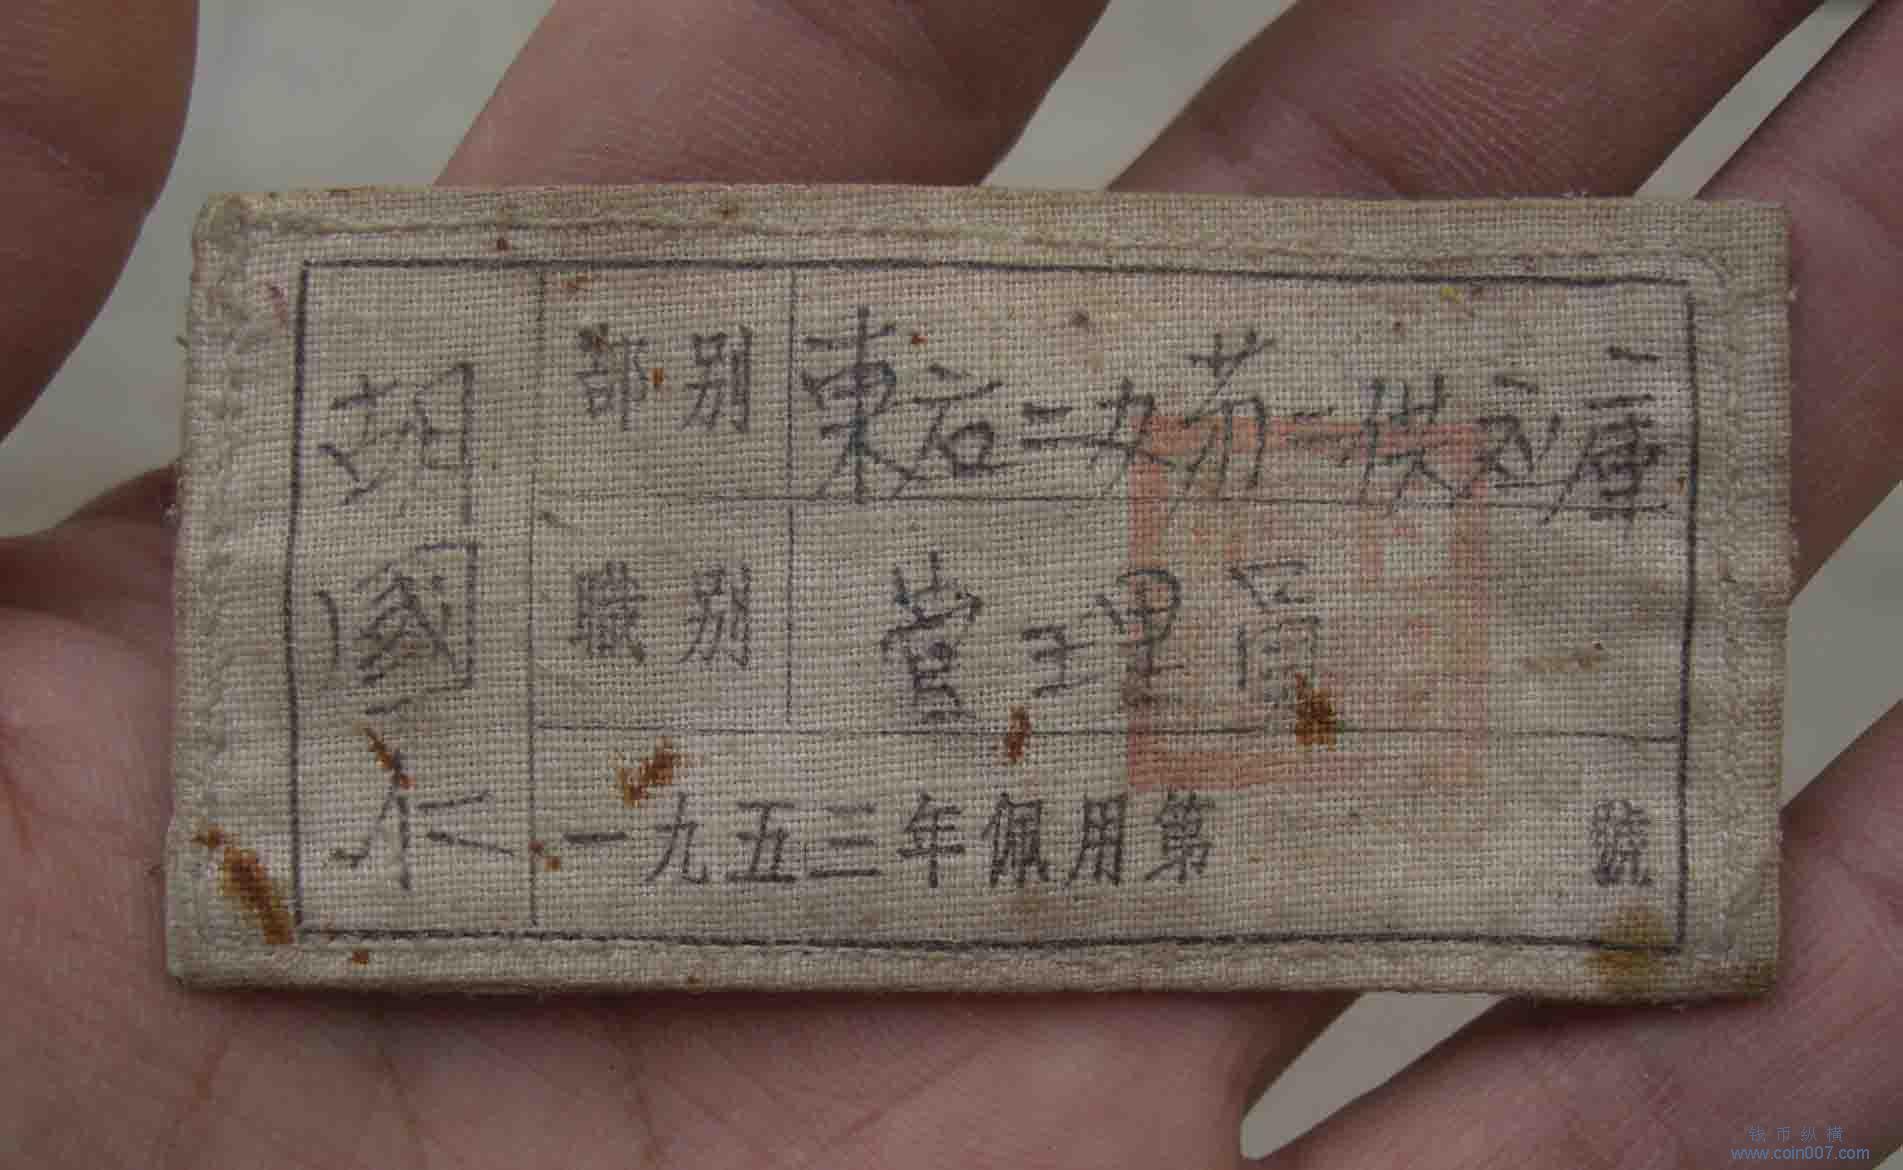 胡國仁
部別 東后二分部第一供应庫
職別 管理員
一九五三年佩用第 號
钱币纵横
www.coin007.com